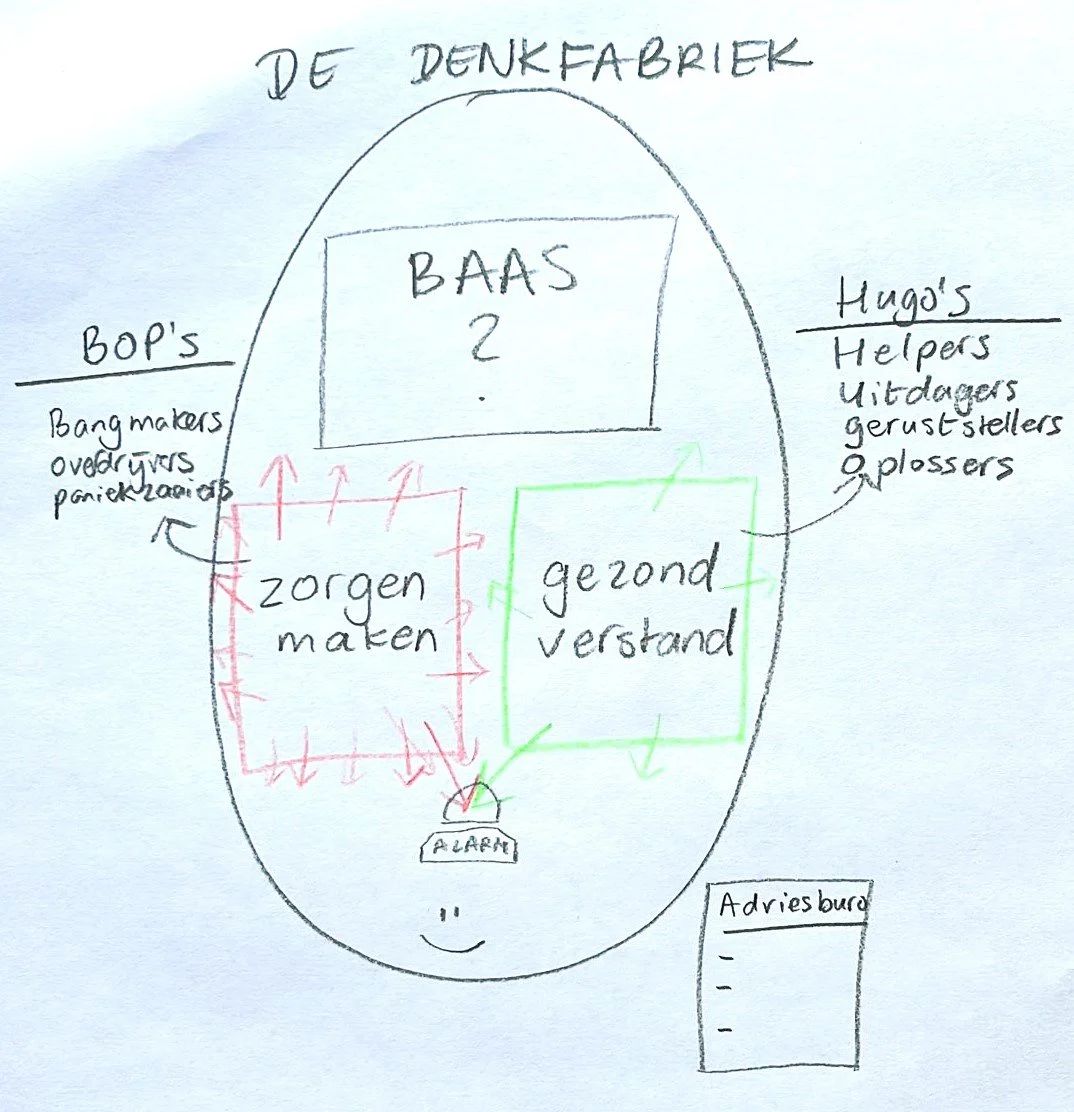 DE DENKFABRIEK
BAAS
?
BOP's
Bangmakers
overdrijvers
paniekzaaiers
Hugo's
Helpers
Uitdagers
geruststellers
Oplossers
zorgen
maken
gezond
verstand
ALARM
Adviesburo
-
-
-